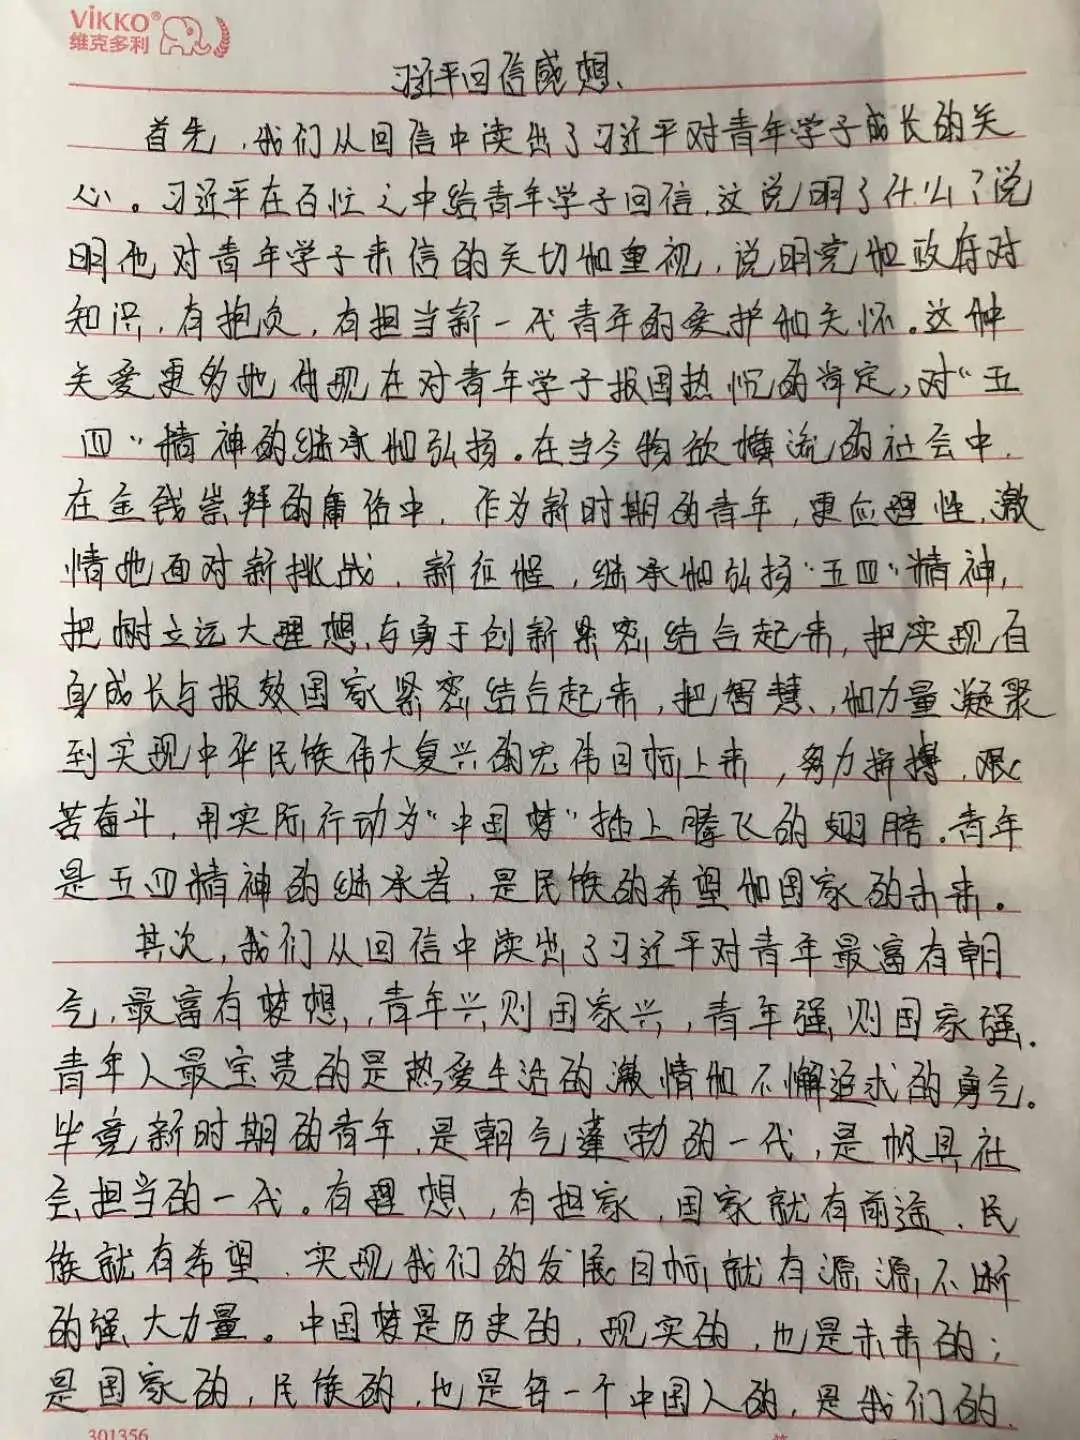 VIKKO®
维克多利
习近平回信感想、
首先，我们从回信中读出了习近平对青年学子成长的关
心。习近平在百忙之中给青年学子回信，这说明了什么？说
明他对青年学子来信的关切和重视，说明党和政府对
知识，有抱负，有担当新一代青年的爱护和关怀。这种
关爱更多地体现在对青年学子报国热忱的肯定，对“五
四”精神的继承和弘扬。在当今物欲横流的社会中，
在金钱崇拜的庸俗中，作为新时期的青年，更应理性，激
情地面对新挑战，新征程，继承和弘扬“五四”精神，
把树立远大理想与勇于创新紧密结合起来，把实现自
身成长与报效国家紧密结合起来，把智慧、和力量凝聚
到实现中华民族伟大复兴的宏伟目标上来，努力拼搏，艰
苦奋斗，用实际行动为“中国梦”插上腾飞的翅膀。青年
是五四精神的继承者，是民族的希望和国家的未来。
其次，我们从回信中读出了习近平对青年最富有朝
气，最富有梦想，青年兴则国家兴，青年强则国家强．
青年人最宝贵的是热爱生活的激情和不懈追求的勇气。
毕竟新时期的青年，是朝气蓬勃的一代，是极具社
会担当的一代。有理想，有担家，国家就有前途，民
族就有希望，实现我们的发展目标就有源源不断
的强大力量。中国梦是历史的，现实的，也是未来的；
是国家的，民族的，也是每一个中国人的，是我们的，
301356